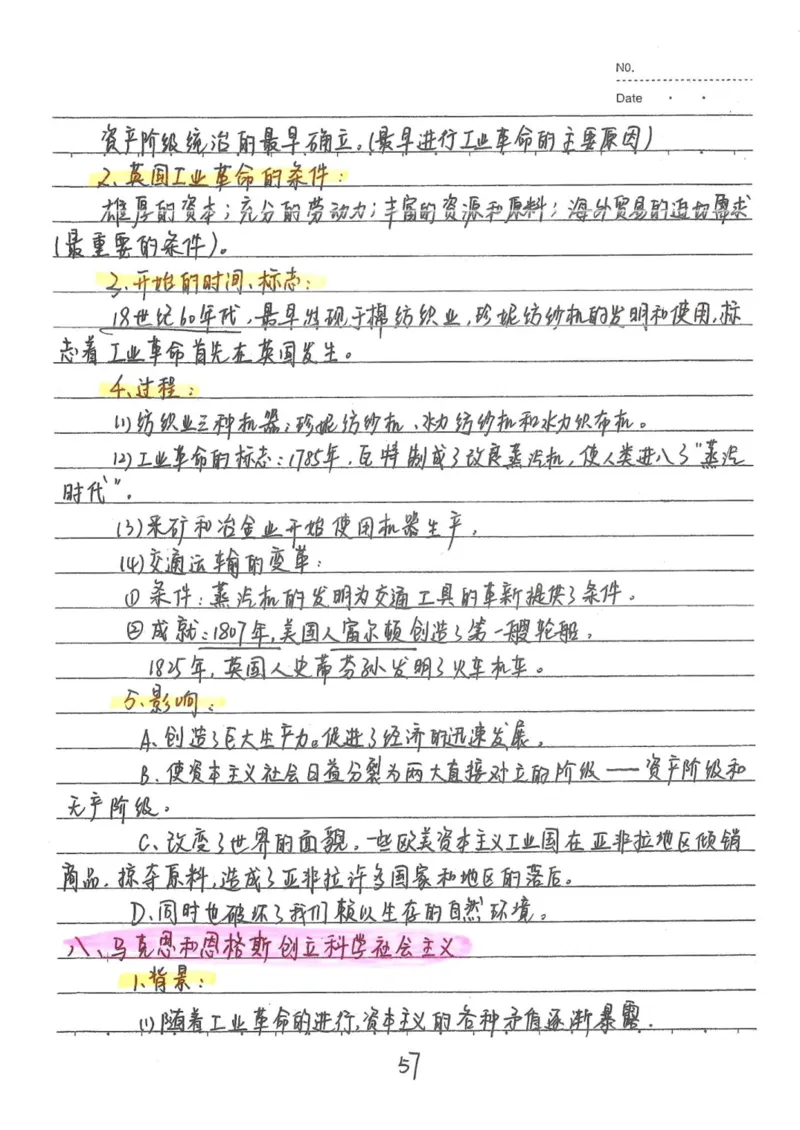 No.
Date
资产阶级统治的最早确立。(最早进行工业革命的主要原因)
2、英国工业革命的条件：
雄厚的资本；充分的劳动力；丰富的资源和原料；海外贸易的迫切需求
(最重要的条件)。
3、开始的时间、标志：
18世纪60年代，最早出现于棉纺织业，珍妮纺纱机的发明和使用，标
志着工业革命首先在英国发生。
4、过程：
(1)纺织业三种机器：珍妮纺纱机、水力纺纱机和水力织布机。
(2)工业革命的标志：1785年，瓦特制成了改良蒸汽机，使人类进入了"蒸汽
时代"。
(3)采矿和冶金业开始使用机器生产，
(4)交通运输的变革：
①条件：蒸汽机的发明为交通工具的革新提供了条件。
②成就：1807年，美国人富尔顿创造了第一艘轮船，
1825年，英国人史蒂芬孙发明了火车机车。
5、影响：
A、创造了巨大生产力。促进了经济的迅速发展，
B、使资本主义社会日益分裂为两大直接对立的阶级——资产阶级和
无产阶级。
C、改变了世界的面貌，一些欧美资本主义工业国在亚非拉地区倾销
商品，掠夺原料，造成了亚非拉许多国家和地区的落后。
D、同时也破坏了我们赖以生存的自然环境。
八、马克思和恩格斯创立科学社会主义
1.背景：
(1)随着工业革命的进行，资本主义的各种矛盾逐渐暴露．
57